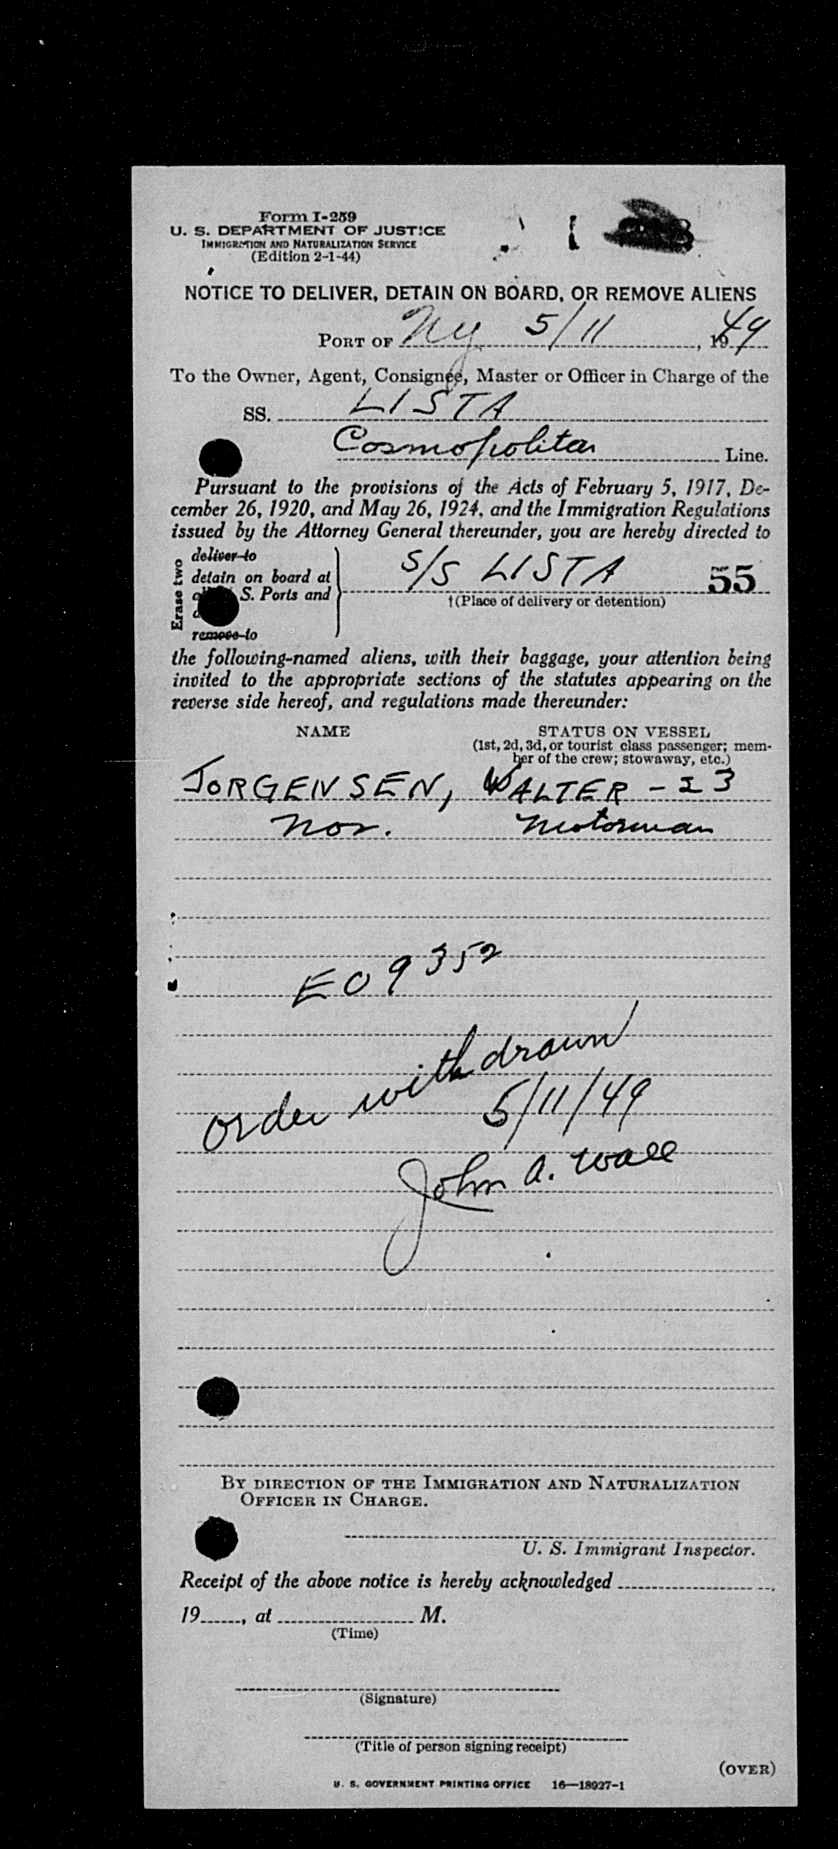 Form I-259
U. S. DEPARTMENT OF JUSTICE
IMMIGRATION AND NATURALIZATION SERVICE
(Edition 2-1-44)
NOTICE TO DELIVER, DETAIN ON BOARD, OR REMOVE ALIENS
PORT OF Ny 5/11, 1949
To the Owner, Agent, Consignee, Master or Officer in Charge of the
SS. LISTA
Cosmopolitan Line.
Pursuant to the provisions of the Acts of February 5, 1917, De-
cember 26, 1920, and May 26, 1924, and the Immigration Regulations
issued by the Attorney General thereunder, you are hereby directed to
Erase two
deliver to
detain on board at
S. Ports and
remove to
S/S LISTA 55
†(Place of delivery or detention)
the following-named aliens, with their baggage, your attention being
invited to the appropriate sections of the statutes appearing on the
reverse side hereof, and regulations made thereunder:
NAME STATUS ON VESSEL
(1st, 2d, 3d, or tourist class passenger; mem-
ber of the crew; stowaway, etc.)
JORGENSEN, WALTER - 23
Nor. Motorman
EO 9352
order withdrawn
5/11/49
John A. Wall
BY DIRECTION OF THE IMMIGRATION AND NATURALIZATION
OFFICER IN CHARGE.
U. S. Immigrant Inspector.
Receipt of the above notice is hereby acknowledged
19, at M.
(Time)
(Signature)
(Title of person signing receipt)
(OVER)
U. S. GOVERNMENT PRINTING OFFICE 16—18927-1